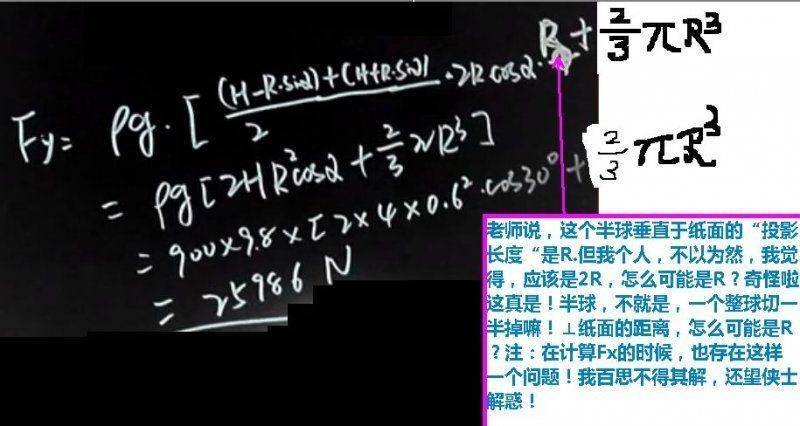 Fy= ρg·[ (H-R·sinα)+(H+R·sinα) / 2 ·2R cosα· R + 2/3 πR³
= ρg[2HR²cosα + 2/3 πR³]
= 900×9.8×[2×4×0.6²·cos30° + 2/3 πR³
= 25986 N
老师说，这个半球垂直于纸面的“投影
长度“是R.但我个人，不以为然，我觉
得，应该是2R，怎么可能是R？奇怪啦
这真是！半球，不就是，一个整球切一
半掉嘛！⊥纸面的距离，怎么可能是R
？注：在计算Fx的时候，也存在这样
一个问题！我百思不得其解，还望侠士
解惑！